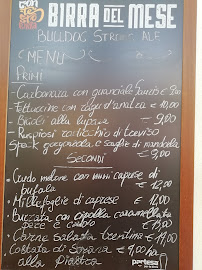 BIRRA DEL MESE
BULLDOG STRONG ALE
MENU
PRIMI
- Carbonara con guanciale
- Fettuccine con ragù d'anatra € 10,00
- alla € 9,00
- radicchio di treviso
speck gorgonzola e scaglie di mandorla € 9,00
SECONDI
- Crudo con mini caprese di
bufala € 12,00
- Millefoglie di caprese € 11,00
- Burrata con cipolla caramellata
pere e € 11,00
- Carne Salada trentina € 19,00
- Costata di € 4,00 /ha
alla piastra
partesa